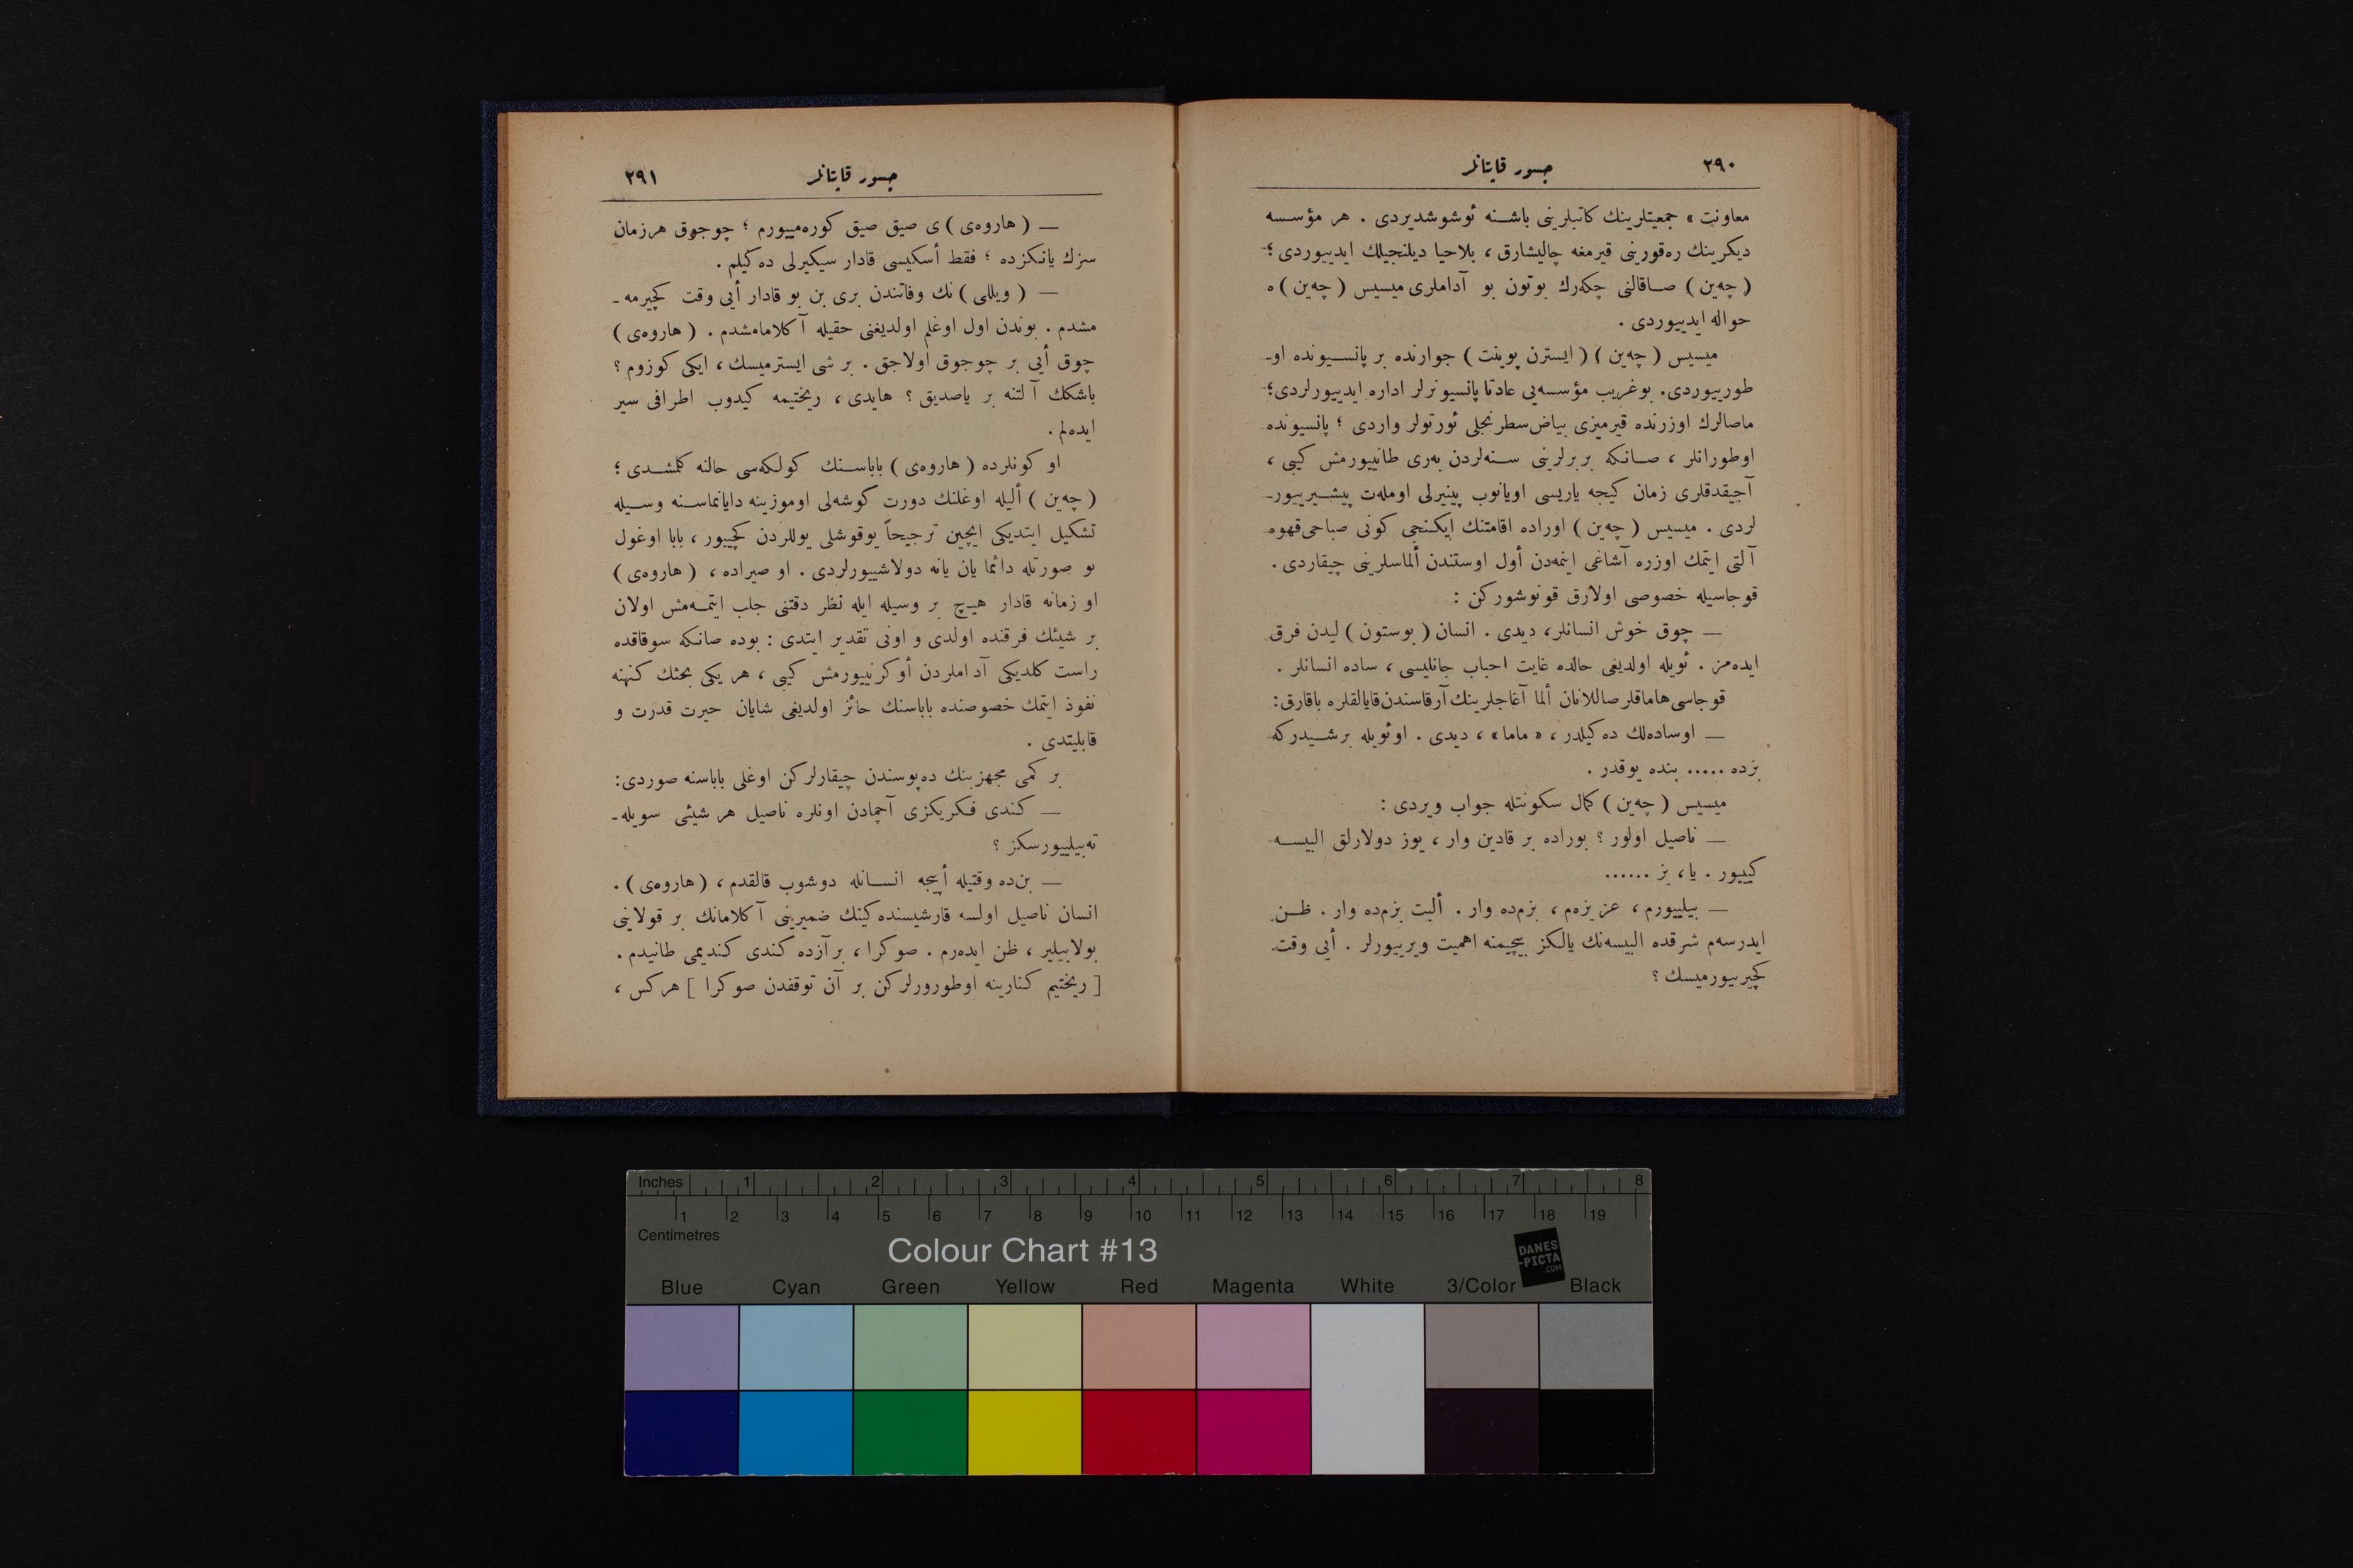 ٢٩٠
جسور قاپتانلر
معاونت » جمعيتلرينك كاتبلرينى باشنه ئوشوشديردى . هر مؤسسه
ديكرينك ره‌قورينى قيرمغه چاليشارق ، بلاحيا ديلنجيلك ايدييوردى ؛
( چه‌ين ) صاقالنى چكه‌رك بوتون بو آداملرى ميسيس ( چه‌ين ) ه
حواله ايدييوردى .
ميسيس ( چه‌ين ) ( ايسترن پوينت ) جوارنده بر پانسيونده او-
طورييوردى. بوغريب مؤسسه‌يى عادتا پانسيونرلر اداره ايدييورلردى؛
ماصالرك اوزرنده قيرميزى بياض سطرنجلى ئورتولر واردى ؛ پانسيونده
اوطورانلر ، صانكه بربرلرينى سنه‌لردن به‌رى طانييورمش كيبى ،
آجيقدقلرى زمان كيجه ياريسى اويانوب پينيرلى اومله‌ت پيشيرييور-
لردى . ميسيس ( چه‌ين ) اوراده اقامتنك ايكنجى كونى صباحى قهوه
آلتى ايتمك اوزره آشاغى اينمه‌دن أول اوستندن ألماسلرينى چيقاردى .
قوجاسيله خصوصى اولارق قونوشوركن :
— چوق خوش انسانلر، ديدى . انسان ( بوستون ) ليدن فرق
ايده‌مز . ئويله اولديغى حالده غايت احباب جانليسى ، ساده انسانلر .
قوجاسى هاماقلر صاللانان ألما آغاجلرينك آرقاسندن قايالقلره باقارق:
— اوساده‌لك ده كيلدر ، « ماما » ، ديدى . اوئويله برشيدركه
بزده ..... بنده يوقدر .
ميسيس ( چه‌ين ) كمال سكونتله جواب ويردى :
— ناصيل اولور ؟ بوراده بر قادين وار ، يوز دولارلق البيسه
كيييور . يا، بز ......
— بيلييورم ، عزيزه‌م ، بزم‌ده وار . ألبت بزم‌ده وار . ظن
ايدرسه‌م شرقده البيسه‌نك يالكز بيچيمنه اهميت ويرييورلر . أيى وقت
كچيرييورميسك ؟
جسور قاپتانلر
٢٩١
— ( هاروه‌ى ) ى صيق صيق كوره‌مييورم ؛ چوجوق هرزمان
سزك يانكزده ؛ فقط أسكيسى قادار سيكيرلى ده كيلم .
— ( ويللى ) نك وفاتندن برى بن بو قادار أيى وقت كچيرمه-
مشدم . بوندن اول اوغلم اولديغنى حقيله آكلامامشدم . ( هاروه‌ى )
چوق أيى بر چوجوق اولاجق . بر شى ايسترميسك ، ايكى كوزوم ؟
باشكك آلتنه بر ياصديق ؟ هايدى ، ريختيمه كيدوب اطرافى سير
ايده‌لم .
او كونلرده ( هاروه‌ى ) باباسنك كولكه‌سى حالنه كلمشدى ؛
( چه‌ين ) أليله اوغلنك دورت كوشه‌لى اوموزينه دايانماسنه وسيله
تشكيل ايتديكى ايچين ترجيحاً يوقوشلى يوللردن كچييور ، بابا اوغول
بو صورتله دائما يان يانه دولاشييورلردى . او صيراده ، ( هاروه‌ى )
او زمانه قادار هيچ بر وسيله ايله نظر دقتنى جلب ايتمه‌مش اولان
بر شيئك فرقنده اولدى و اونى تقدير ايتدى : بوده صانكه سوقاقده
راست كلديكى آداملردن أوكرنييورمش كيبى ، هر يكى بحثك كنهنه
نفوذ ايتمك خصوصنده باباسنك حائز اولديغى شايان حيرت قدرت و
قابليتدى .
بر كمى مجهزينك ده‌پوسندن چيقارلركن اوغلى باباسنه صوردى:
— كندى فكريكزى آچمادن اونلره ناصيل هر شيئى سويله-
ته‌بيلييورسكز ؟
— بن‌ده وقتيله أييجه انسانله دوشوب قالقدم ، ( هاروه‌ى ) .
انسان ناصيل اولسه قارشيسنده كينك ضميرينى آكلامانك بر قولاينى
بولابيلير ، ظن ايده‌رم . صوكرا ، برآزده كندى كنديمى طانيدم .
[ ريختيم كنارينه اوطورورلركن بر آن توقفدن صوكرا ] هركس ،
Inches 1 2 3 4 5 6 7 8
1 2 3 4 5 6 7 8 9 10 11 12 13 14 15 16 17 18 19
Centimetres
Colour Chart #13
DANES
-PICTA
.COM
Blue Cyan Green Yellow Red Magenta White 3/Color Black